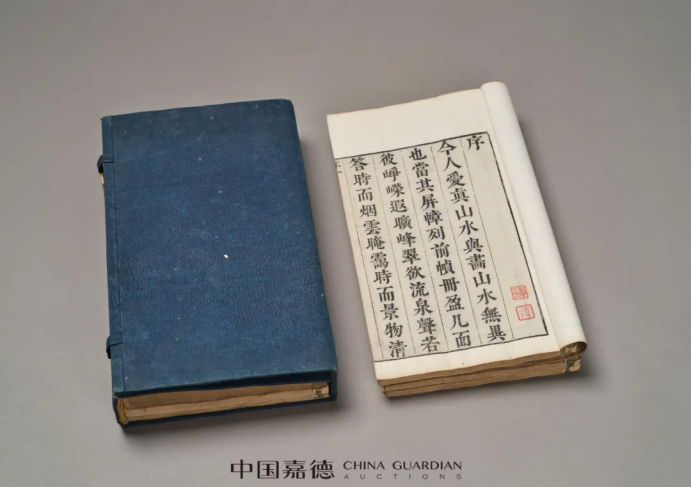 序
今人愛真山水與畫山水無異
也當其屏幛列前幀冊盈几面
彼崢嶸遐曠峰翠欲流泉聲若
答時而烟雲晻靄時而景物清
中国嘉德 CHINA GUARDIAN
AUCTIONS